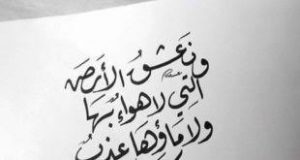 ونعشق الأرض
التي لا هواء بها
ولا ماؤها عذب